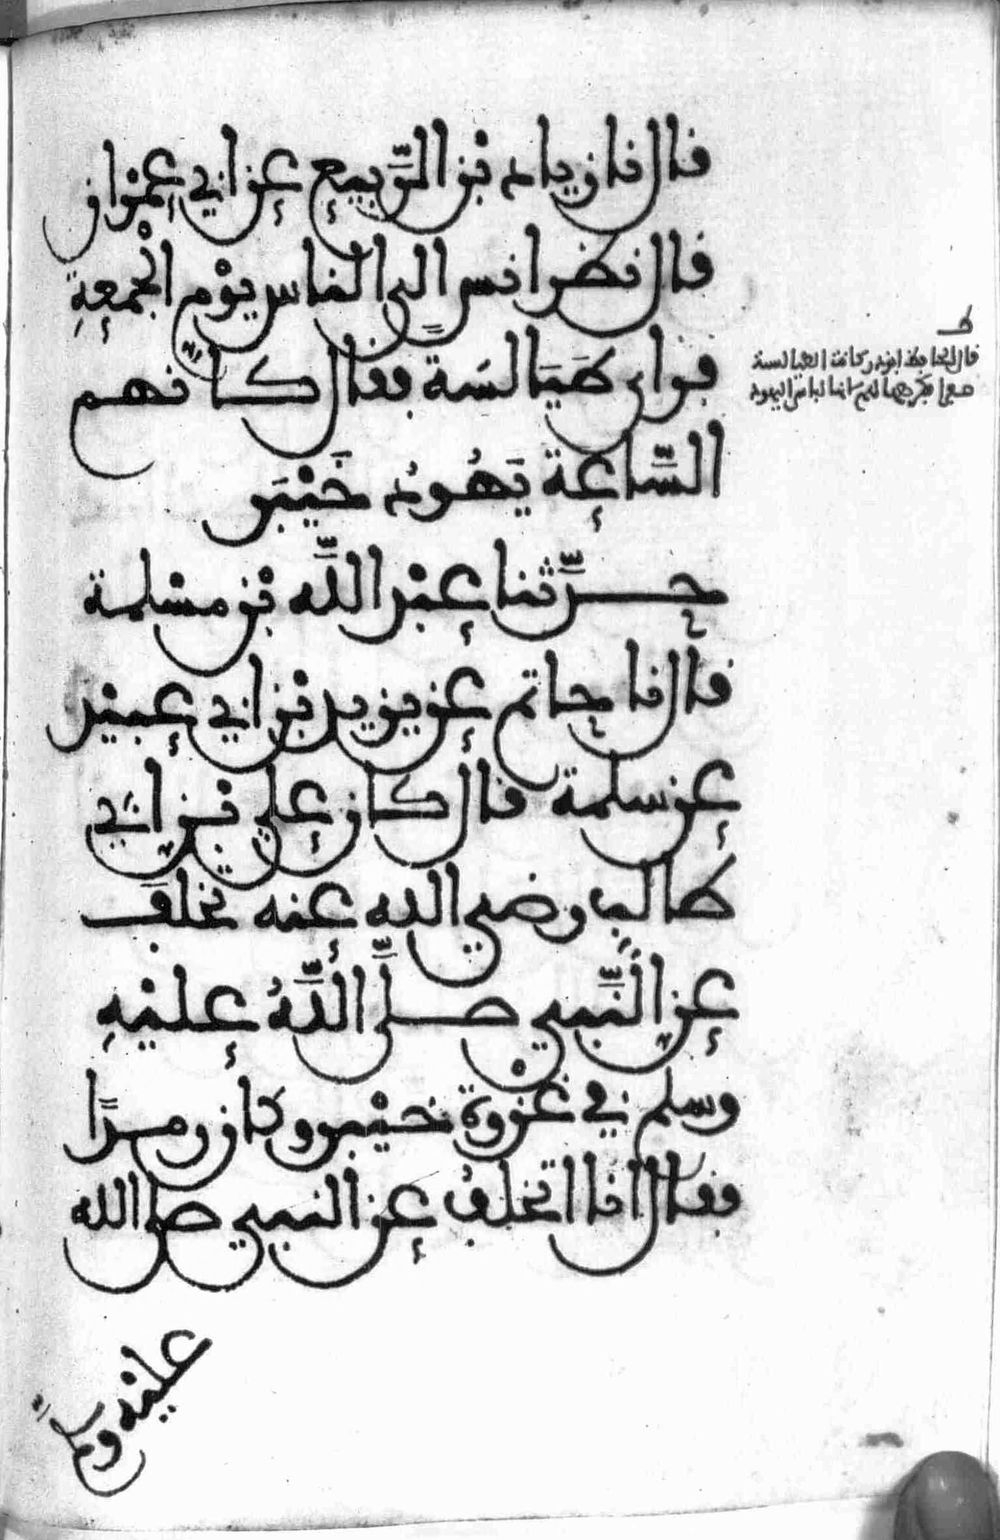 قال نا زياد بن الرَّبيع عن ابي عمران
قال نظر انس الى الناس يوْم الجُمعةِ
فراى طَيَالسَة فقال كانهم
السَّاعة يَهُود خَيْبَر
حدَّثنا عبْد اللَّه بْن مسْلمة
قال نا حاتم عن يزيد بْن ابي عبيْد
عن سلمة قال كان علي بْن ابَي
طالب رضي الله عنه تخلفَ
عن النَّبي صلَّى اللَّهُ عليْهِ
وسلم في غزْوة خيْبر وكان رمدًا
فقال انا اتخلفُ عن النبي صلى الله
عليْه وسلم
ط
قال الحافظ ابوذر كانت الطيالسة
صفرا فكرهها لهم انما لباس اليهود